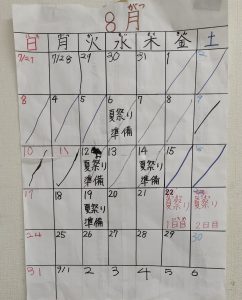 8月
がつ
日 月 火 水 木 金 土
7/27 7/28 29 30 31 1 2
3 4 5 6 7 8 9
夏祭り
準備
10 11 12 13 14 15
夏祭り 夏祭り
準備 準備
17 18 19 20 21 22
夏祭り 夏祭り 夏祭り
準備 1日目 2日目
24 25 26 27 28 29 30
31 9/1 2 3 4 5 6